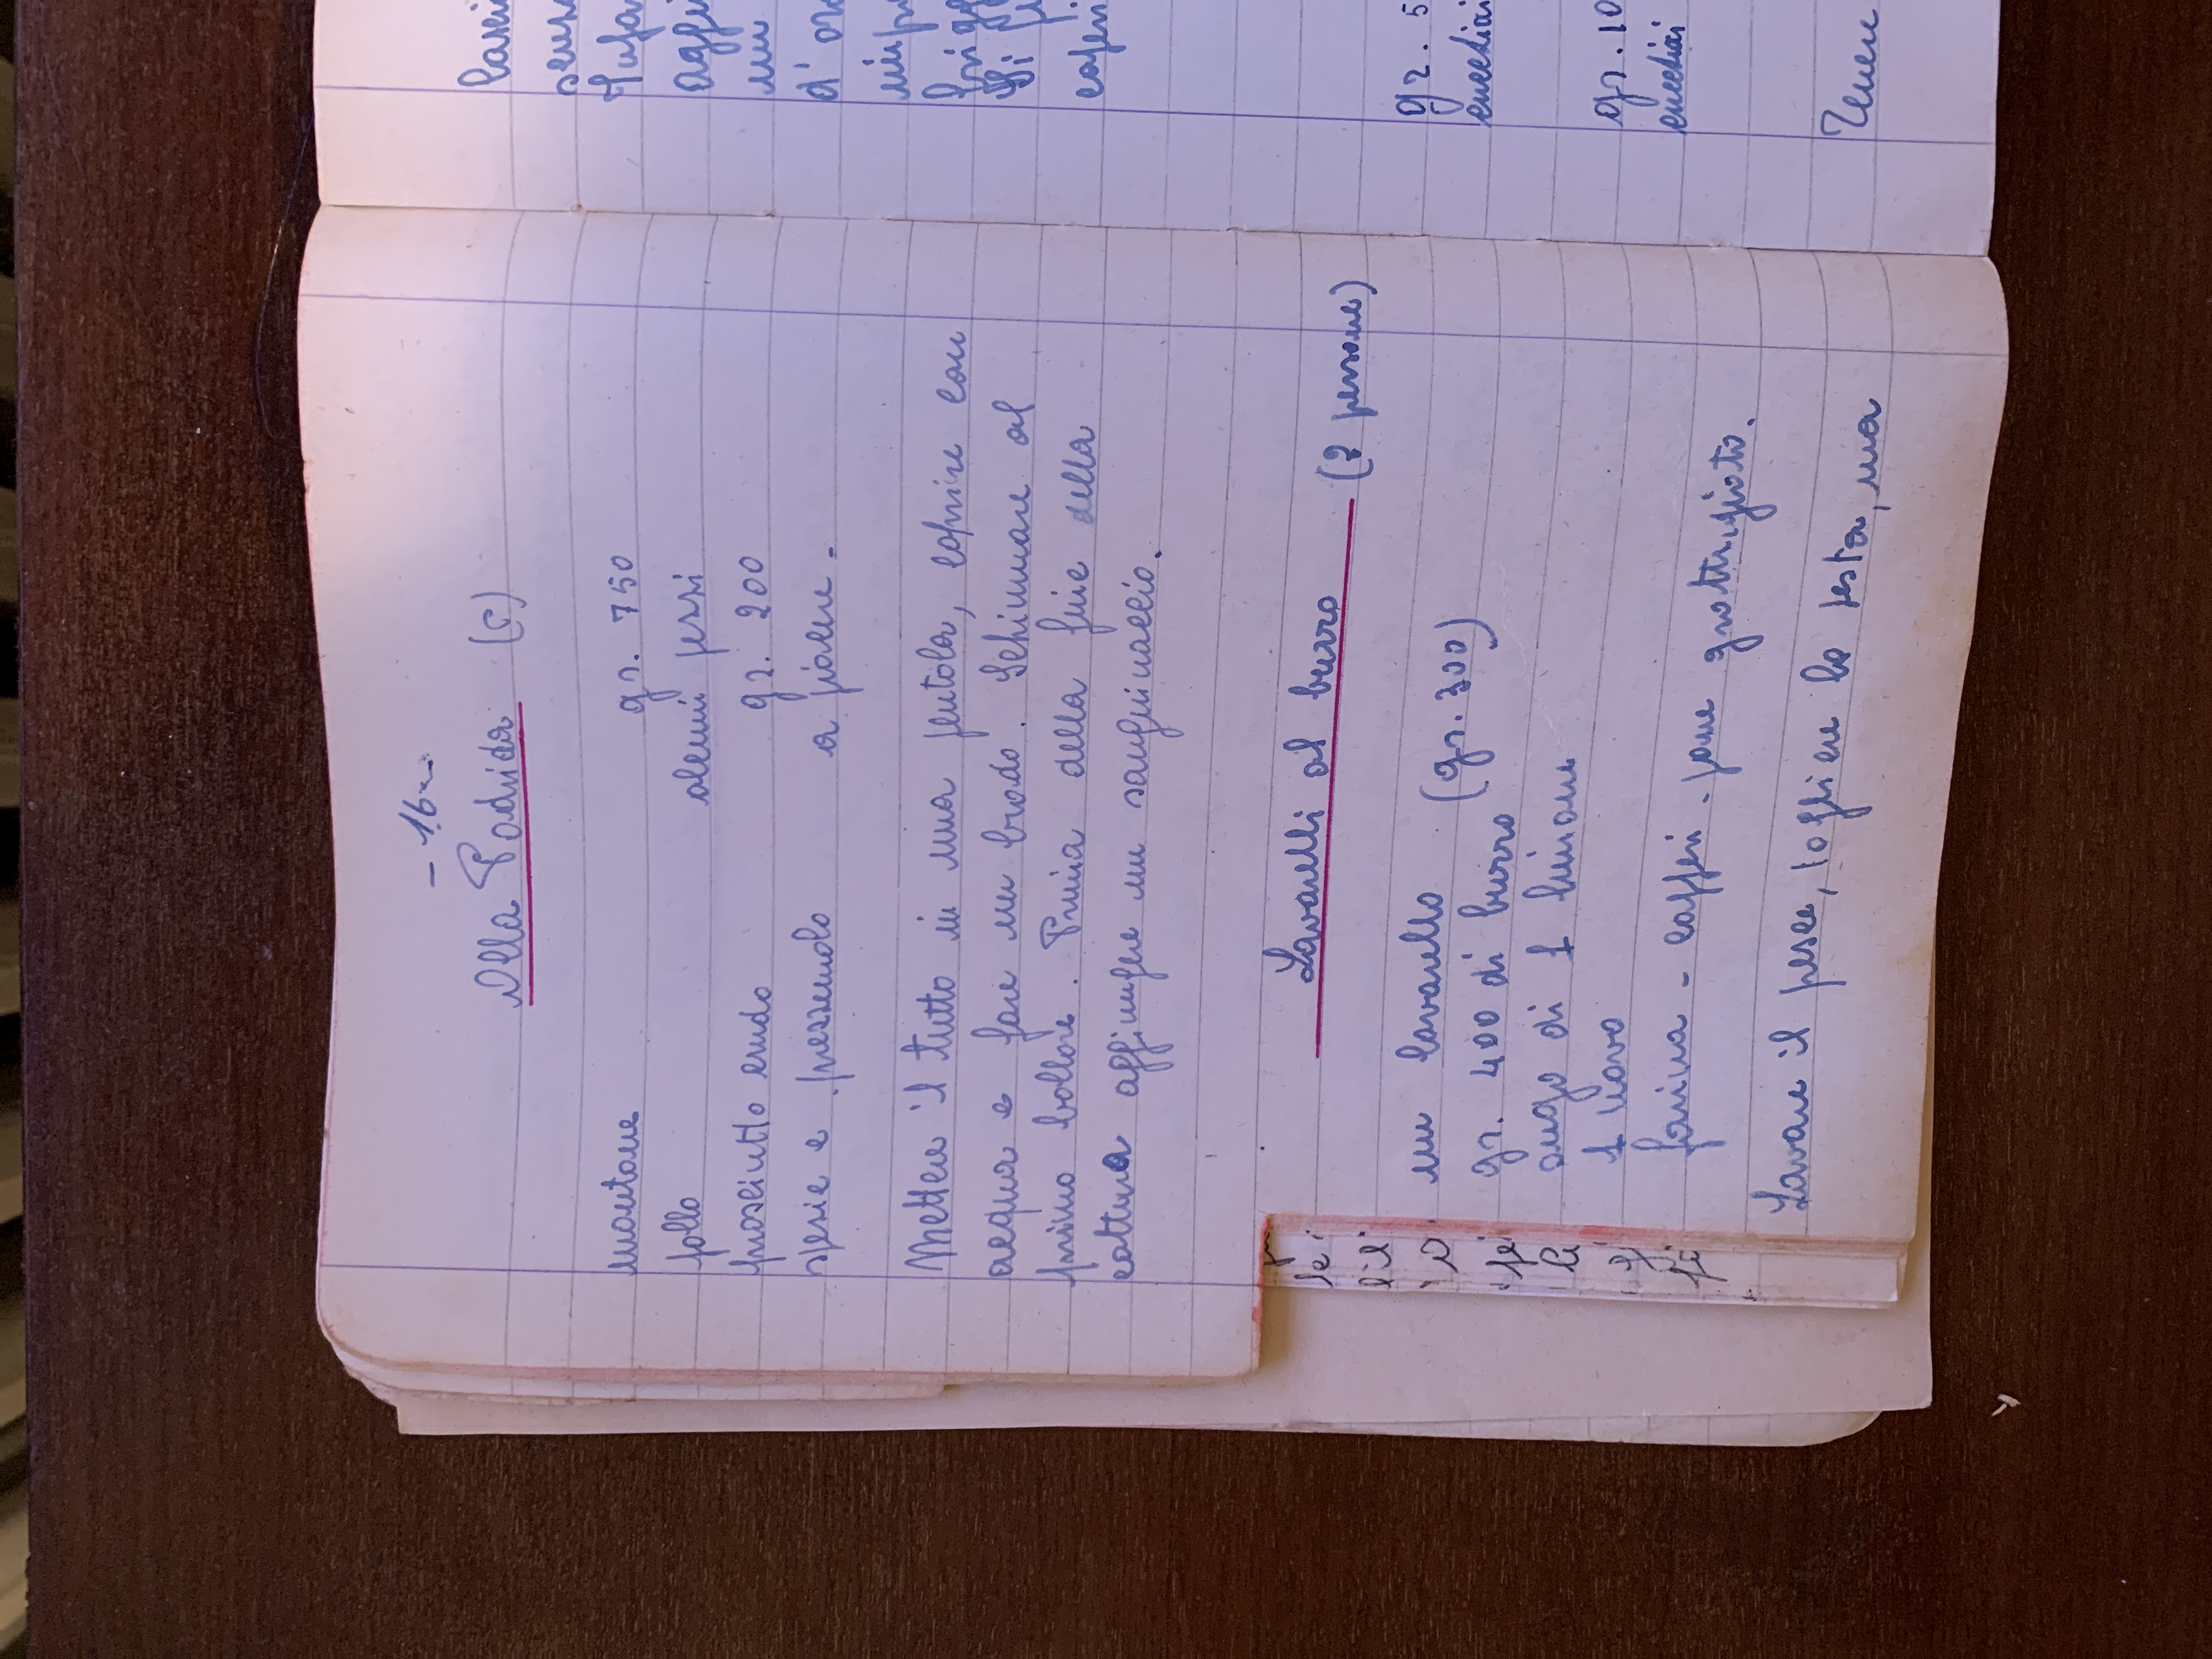 - 16 -
Olla Podrida (6)
montone gr. 750
pollo alcuni pezzi
prosciutto crudo gr. 200
spezie e prezzemolo a piacere -
Mettere il tutto in una pentola, coprire con
acqua e fare un brodo. Schiumare al
primo bollore. Prima della fine della
cottura aggiungere un sanguinaccio.
Lavarelli al burro (2 persone)
un lavarello (gr. 300)
gr. 400 di burro
sugo di 1 limone
1 uovo
farina - capperi - pane grattugiato.
Lavare il pesce, togliere la testa, ma
lasci
senza
Infa
aggiu
un
d' oro
frigg
Si
caperi
gr. 5
cucchiai
gr. 10
cucchiai
Tenere